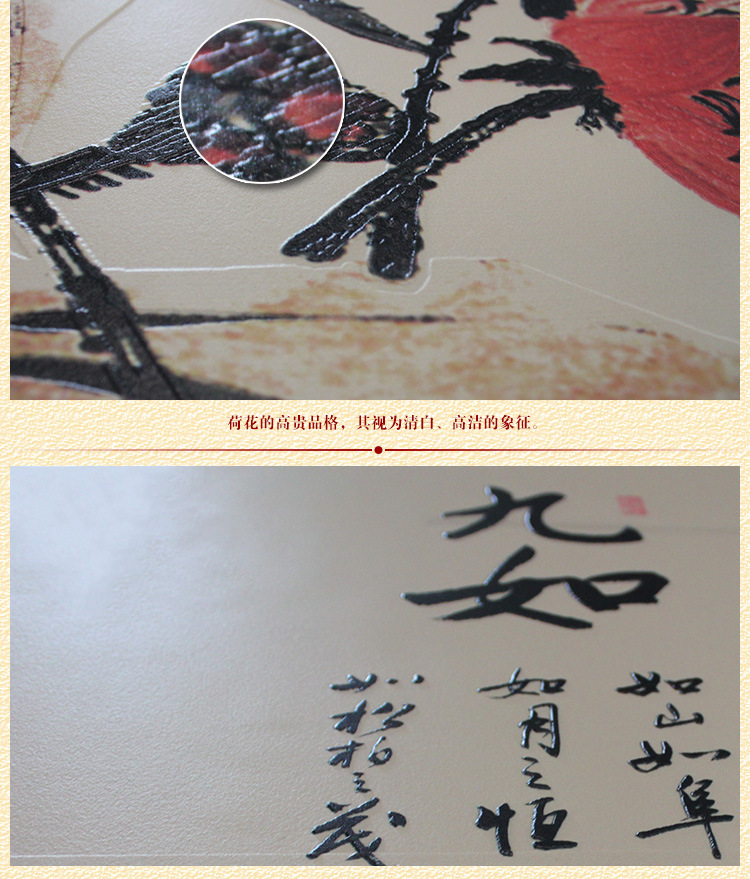 荷花的高贵品格，其视为清白、高洁的象征。
九如
如山如阜
如月之恒
如松柏之茂